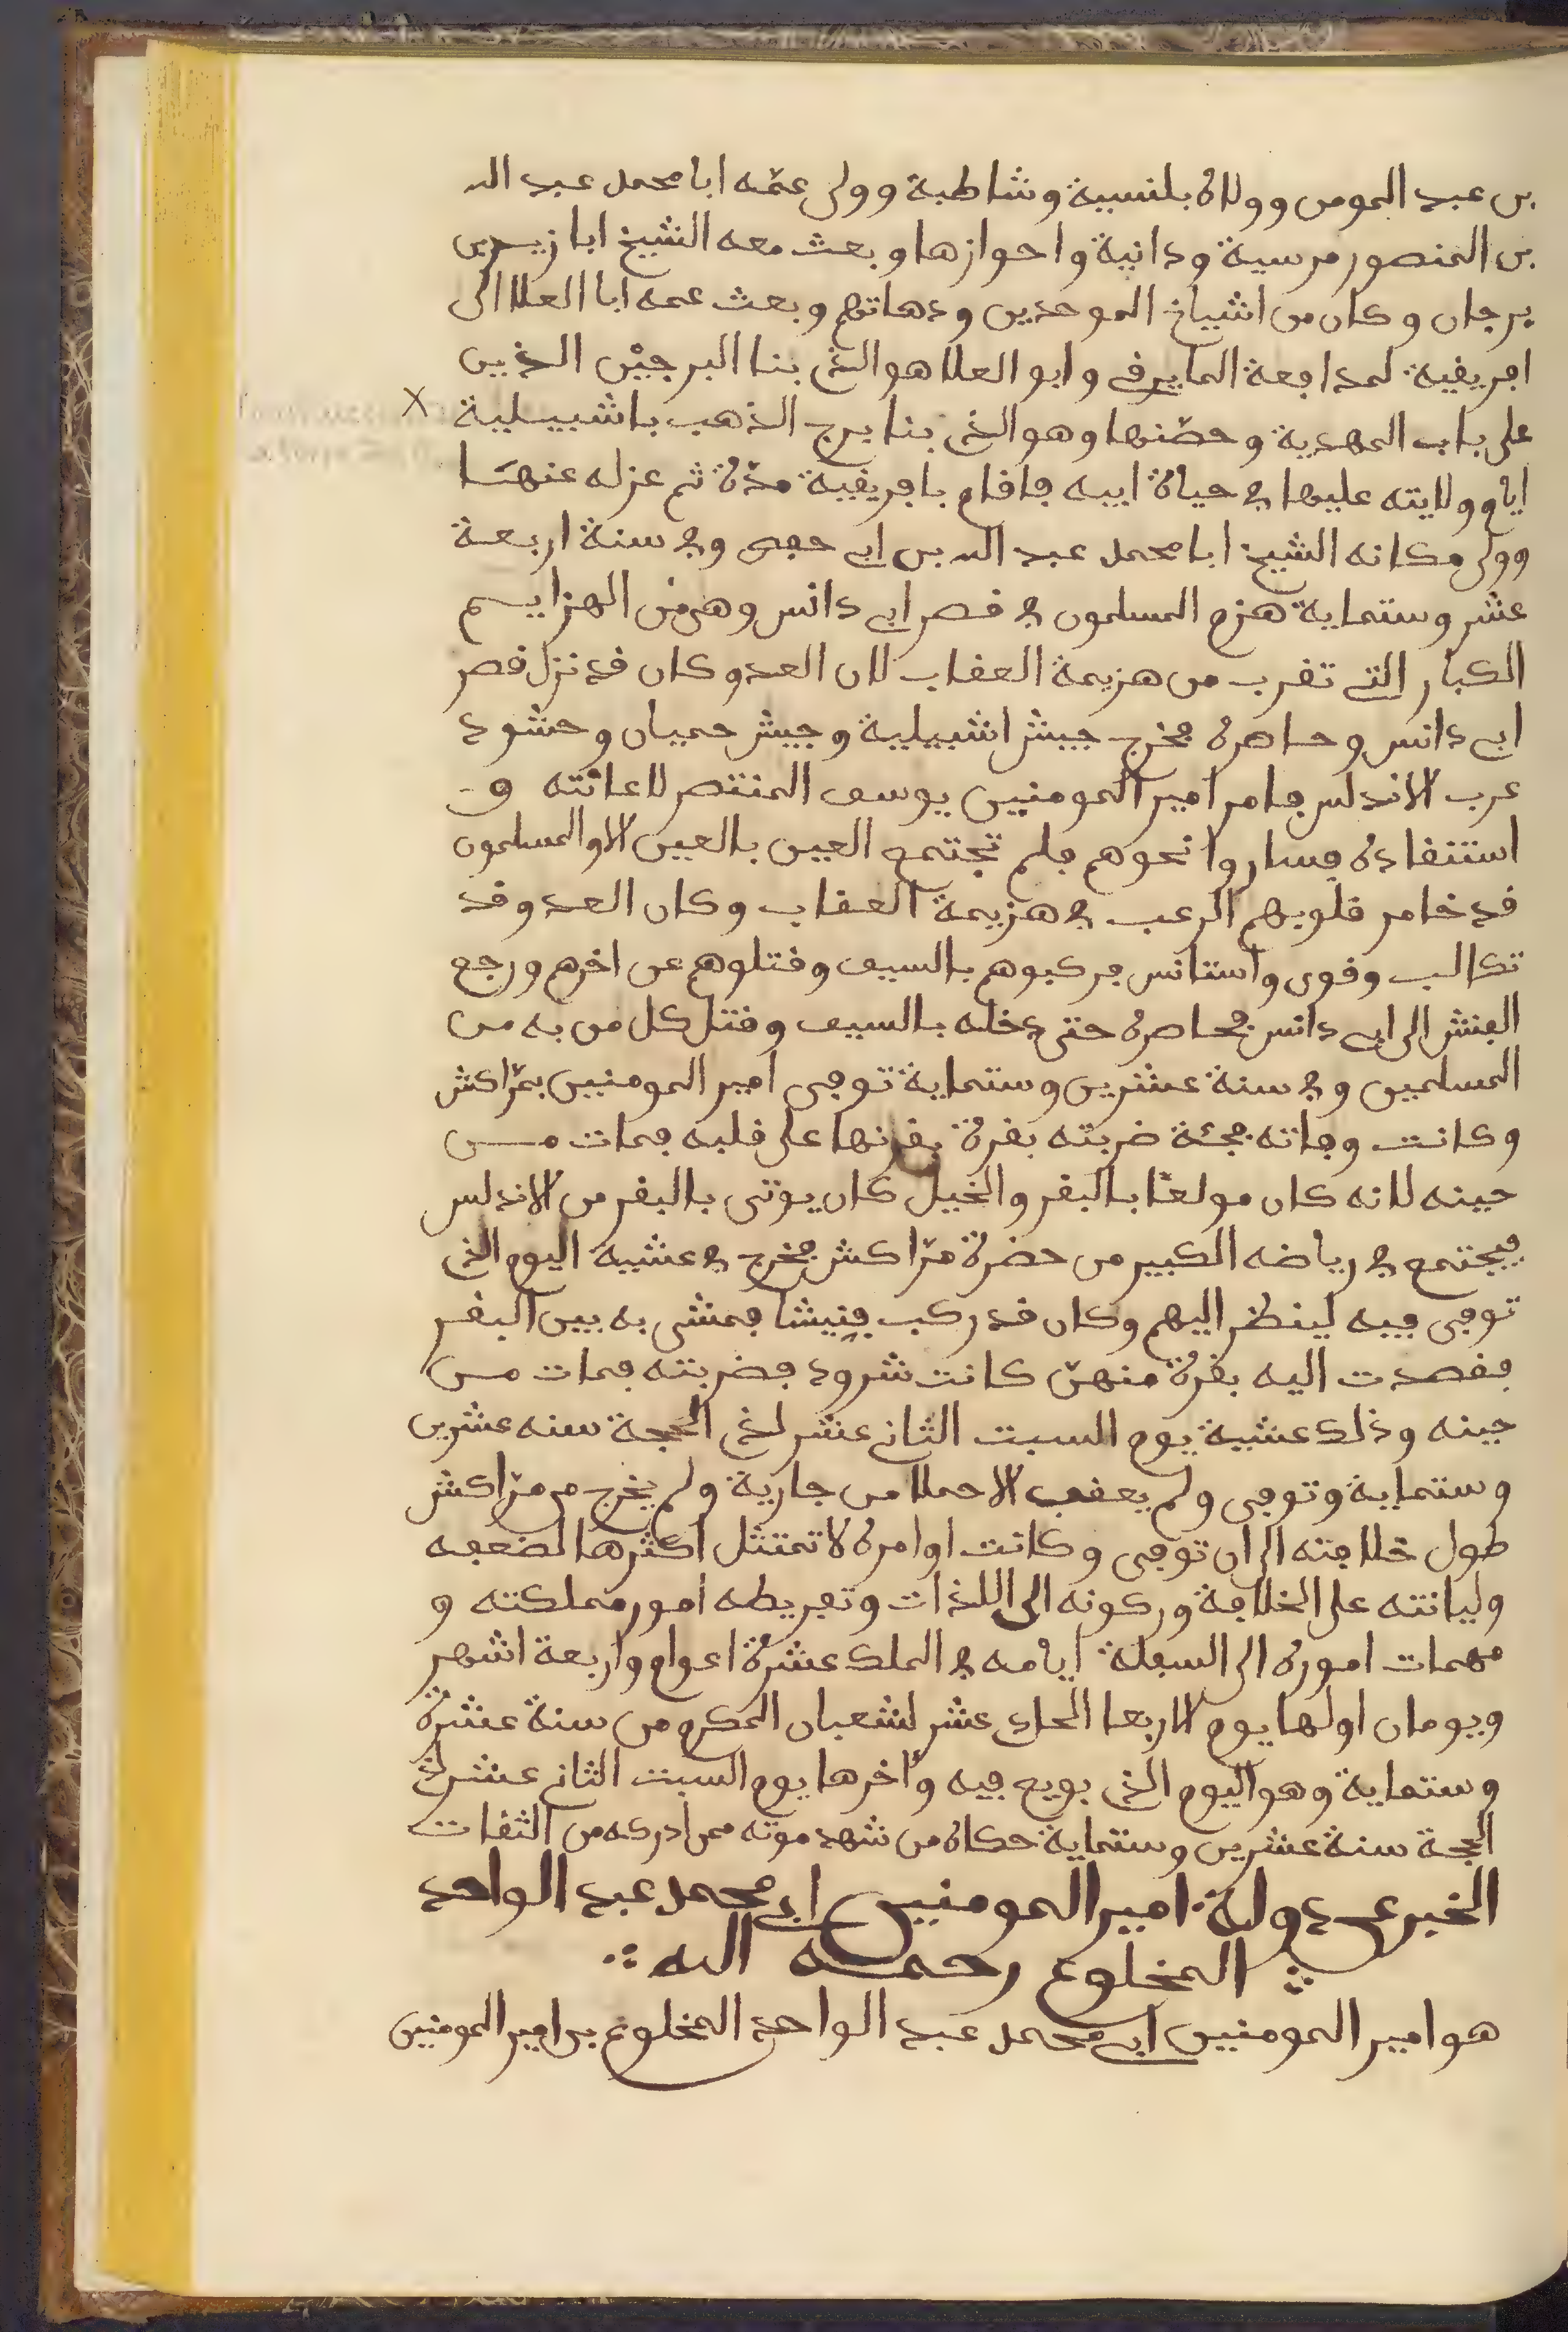 بن عبد المومن وولاه بلنسية وشاطبة وولى عمّه ابا محمد عبد الله
بن المنصور مرسية ودانية واحوازها وبعث معه الشيخ ابا زيد بن
يرجان وكان من اشياخ الموحدين ودهاتهم وبعث عمه ابا العلا الى
افريقية لمدافعة المايرقي وابو العلا هو الذي بنا البرجيْن الذين
على باب المهدية وحصّنها وهو الذي بنا برج الذهب باشبيلية
ايام ولايته عليها في حياة ابيه فاقام بافريقية مدّة ثم عزله عنها
وولى مكانه الشيخ ابا محمد عبد الله بن ابي حفص وفي سنة اربعة
عشر وستماية هزم المسلمون في قصر ابي دانس وهي من الهزايم
الكبار التي تقرب من هزيمة العقاب لان العدو كان قد نزل قصر
ابي دانس وحاصره فخرج جيش اشبيلية وجيش جميان وحشود
غرب الاندلس فامر امير المومنين يوسف المنتصر لاغاثته و
استنقاذه فساروا نحوهم فلم تجتمع العين بالعين الا والمسلمون
قد خامر قلوبهم الرعب في هزيمة العقاب وكان العدو قد
تكالب وقوى واستانس فركبوهم بالسيف وقتلوهم عن اخرهم ورجع
الفنش الى ابي دانس فحاصره حتى دخله بالسيف وقتل كل من به من
المسلمين وفي سنة عشرين وستماية توفى امير المومنين بمرّاكش
وكانت وفاته فجئة ضربته بقرة بقرنها على قلبه فمات من
حينه لانه كان مولعًا بالبقر والخيل كان يوتى بالبقر من الاندلس
فيجتمع في رياضه الكبير من حضرة مرّاكش فخرج في عشية اليوم الذي
توفى فيه لينظر اليهم وكان قد ركب فنيشا فمشى به بين البقر
فقصدت اليه بقرة منهنّ كانت شرود فضربته فمات من
حينه وذلك عشية يوم السبت الثاني عشر لذي الحجة سنه عشرين
وستماية وتوفى ولم يعقب الا حملا من جارية ولم يخرج من مرّاكش
طول خلافته الى ان توفى وكانت اوامره لا تمتثل اكثرها لضعفه
وليانته على الخلافة وركونه الى اللذات وتفريطه امور مملكته و
مهمات اموره الى السفلة ايامه في الملك عشرة اعوام واربعة اشهر
ويومان اولها يوم الاربعا الحادي عشر لشعبان المكرم من سنة عشرة
وستماية وهو اليوم الذي بويع فيه وآخرها يوم السبت الثاني عشر لذي
الحجة سنة عشرين وستماية حكاه من شهد موته ممن ادركه من الثقات
الخبر عن دولة امير المومنين ابي محمد عبد الواحد
المخلوع رحمه الله
هو امير المومنين ابي محمد عبد الواحد المخلوع بن امير المومنين